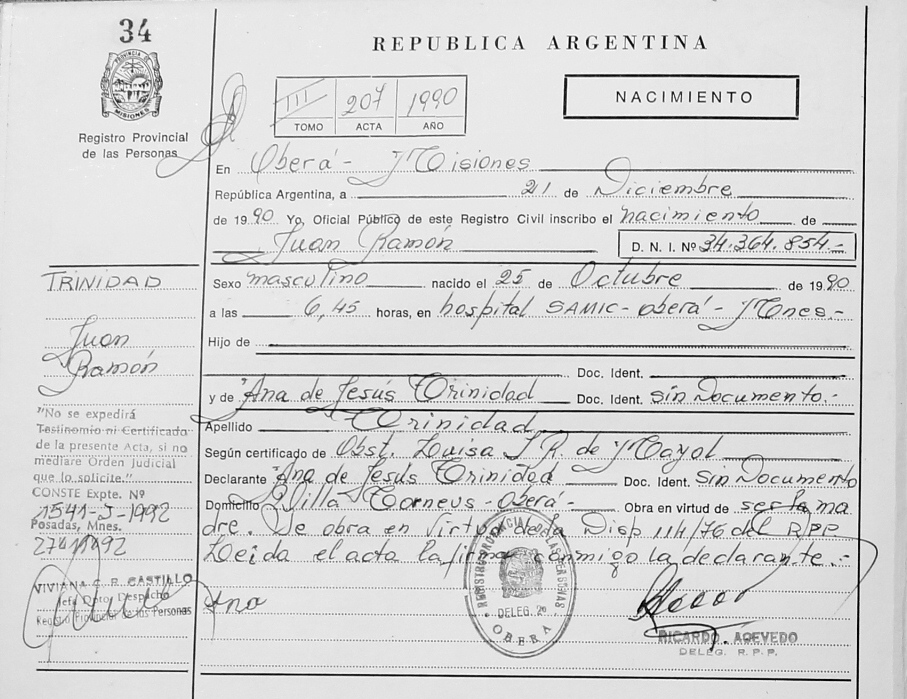 34
PROVINCIA DE
MISIONES
Registro Provincial
de las Personas
REPUBLICA ARGENTINA
III 207 1990
TOMO ACTA AÑO
NACIMIENTO
En Oberá - Misiones
República Argentina, a 21 de Diciembre
de 1990 Yo, Oficial Público de este Registro Civil inscribo el nacimiento de
Juan Ramón D. N. I. Nº 34.364.854.-
Sexo masculino nacido el 25 de Octubre de 1990
a las 6,45 horas, en hospital SAMIC - Oberá - Mnes.-
Hijo de
Doc. Ident.
y de Ana de Jesús Trinidad Doc. Ident. sin Documento.-
Apellido Trinidad
Según certificado de Obst. Luisa J. R. de Mayol
Declarante Ana de Jesús Trinidad Doc. Ident. Sin Documento
Domicilio Villa Torneus - Oberá - Obra en virtud de ser la ma
dre. Se obra en virtud de la Disp 114/76 del R.P.P.
Leída el acta la firma conmigo la declarante.-
Ana
REGISTRO PROVINCIAL DE LAS PERSONAS
DELEG. 20
OBERA
RICARDO ACEVEDO
DELEG. R. P. P.
TRINIDAD
Juan
Ramón
"No se expedirá
Testimonio ni Certificado
de la presente Acta, si no
mediare Orden Judicial
que lo solicite."
CONSTE Expte. Nº
1541-J-1992
Posadas, Mnes.
VIVIANA C. R. CASTILLO
Jefa Dpto. Despacho
Registro Provincial de las Personas